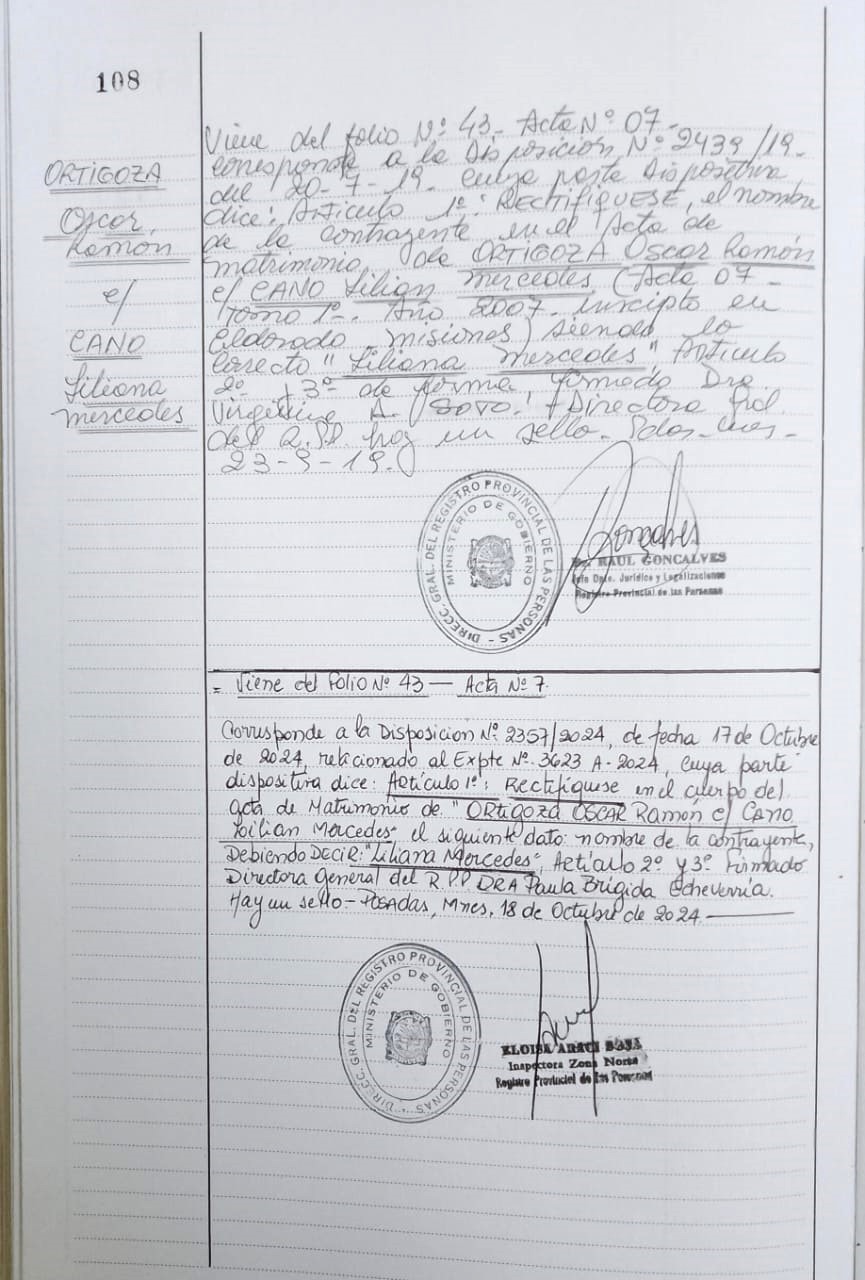 108
ORTIGOZA
Oscar,
Ramón
c/
CANO
Liliana
mercedes
Viene del folio Nº 43. Acta Nº 07-
corresponde a la Disposicion Nº 2439/19.
del 20-7-19. cuya parte dispositiva
dice: Articulo 1º: RECTIFIQUESE, el nombre
de la contrayente en el Acta de
matrimonio, de ORTIGOZA Oscar Ramón
c/ CANO Lilian mercedes (Acta 07-
Tomo 1º. Año 2007. inscripto en
Eldorado - misiones) siendo lo
correcto "Liliana mercedes", Articulo
2º y 3º de forma, firmado Dra.
A. Soto. Directora Gral
del R.PP. hay un sello. Pdas-
23-9-19.
DIRECC. GRAL. DEL REGISTRO PROVINCIAL DE LAS PERSONAS -
MINISTERIO DE GOBIERNO
Goncalves
RAUL GONCALVES
Jefe Dpto. Jurídico y Legalizaciones
Registro Provincial de las Personas
= Viene del Folio Nº 43 — Acta Nº 7.
Corresponde a la Disposicion Nº 2357/2024, de fecha 17 de Octubre
de 2024, relacionado al Expte Nº 3623 A-2024, cuya parte
dispositiva dice: Artículo 1º: Rectifiquese en el cuerpo del
acta de Matrimonio de "ORTIGOZA OSCAR Ramón c/ Cano
Lilian Mercedes" el siguiente dato: nombre de la contrayente,
Debiendo DECIR: "Liliana Mercedes", Artículo 2º y 3º Firmado
Directora General del R.P.P DRA Paula Brigida Echeverría.
Hay un sello - POSADAS, Mnes, 18 de Octubre de 2024.
DIRECC. GRAL. DEL REGISTRO PROVINCIAL DE LAS PERSONAS -
MINISTERIO DE GOBIERNO
ELOISA ARACI
Inspectora Zona Norte
Registro Provincial de las Personas